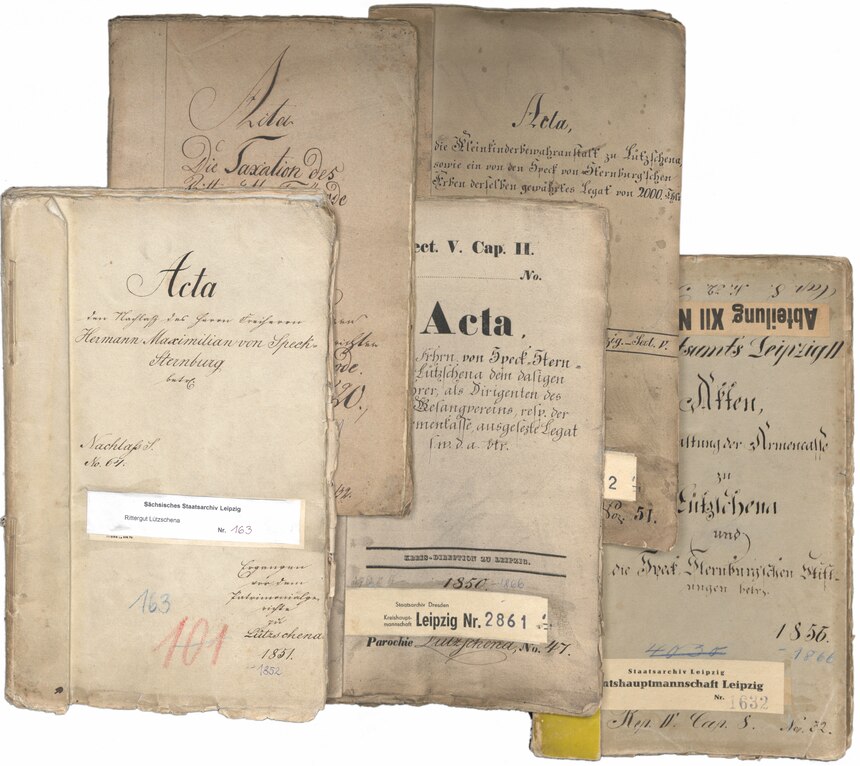 Acta
Die Taxation des
Acta,
die Kleinkinderbewahranstalt zu Lützschena,
sowie ein von den Speck von Sternburg'schen
Erben derselben gewährtes Legat von 2000. Thlr
Acta
den Nachlaß des Herrn Freiherrn
Hermann Maximilian von Speck-
Sternburg
betr.
Nachlaß S.
No. 64.
Sächsisches Staatsarchiv Leipzig
Rittergut Lützschena
Nr. 163
163
101
Ergangen
vor dem
Patrimonialge-
richte
zu
Lützschena
1851.
-1852
20.
ect. V. Cap. II.
No.
Acta,
Frhrn. von Speck-Stern-
Lützschena dem dasigen
rer, als Dirigenten des
Gesangvereins, resp. der
menkasse, ausgesetzte Legat
s.w.d.a. btr.
KREIS-DIRECTION ZU LEIPZIG.
1850-1866
Staatsarchiv Dresden
Kreishaupt-
mannschaft Leipzig Nr. 2861
Parochie Lützschena, No. 47.
Sect. V.
2
51.
Abteilung XII N
tsamts Leipzig II
Akten,
altung der Armencasse
zu
Lützschena
und
die Speck-Sternburg'schen Stift-
ungen betr.
1856.
-1866
Staatsarchiv Leipzig
tshauptmannschaft Leipzig
Nr. 1632
Rep. IV. Cap. 8. No. 32.